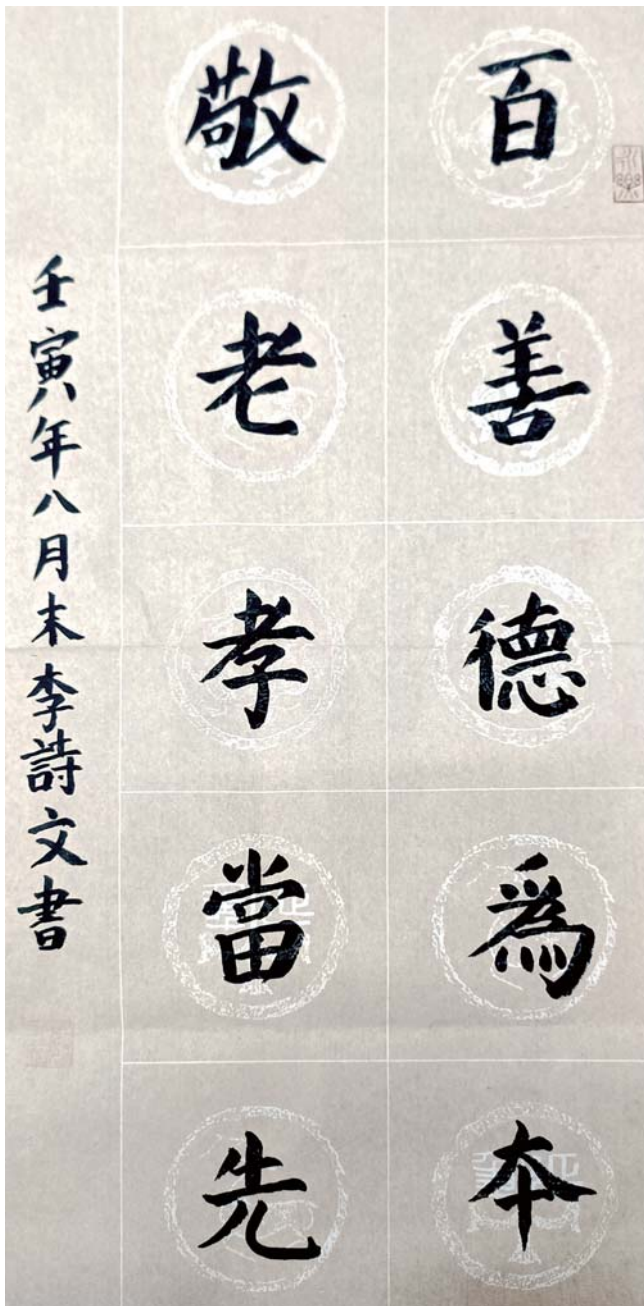 百善德為本
敬老孝當先
壬寅年八月末李詩文書